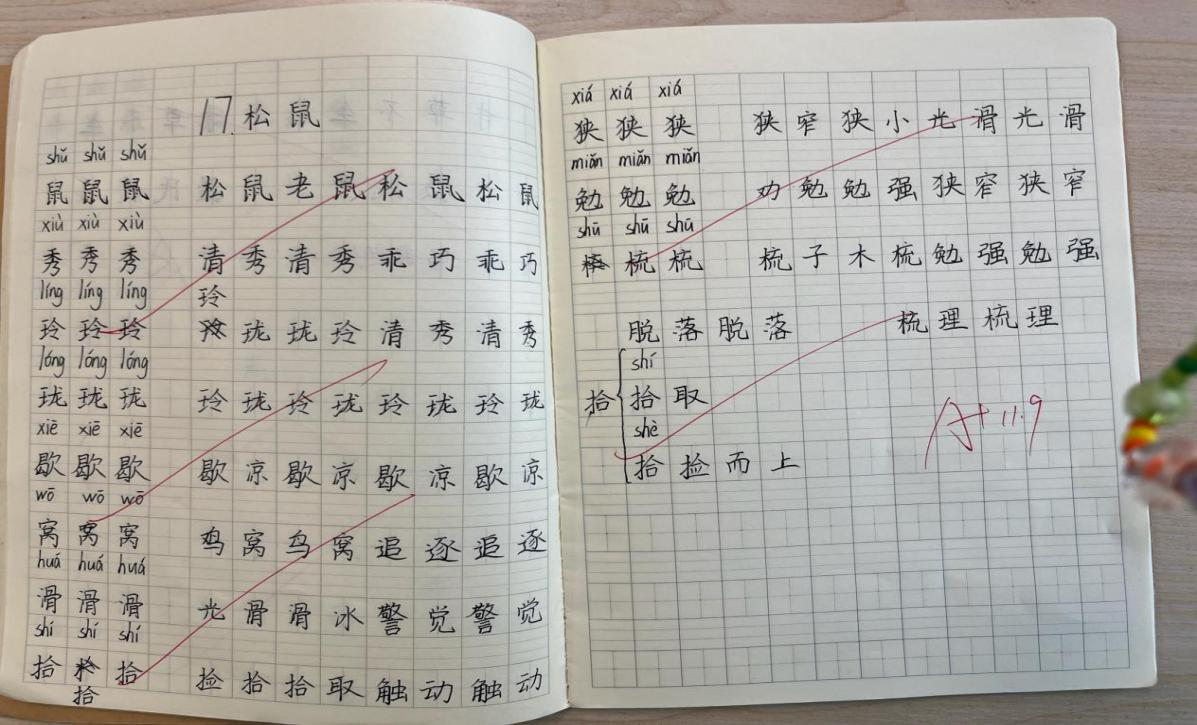 17. 松鼠
shǔ shǔ shǔ
鼠鼠鼠 松鼠老鼠松鼠松鼠
xiù xiù xiù
秀秀秀 清秀清秀乖巧乖巧
líng líng líng 玲
玲玲玲 珑珑玲清秀清秀
lóng lóng lóng
珑珑珑 玲珑玲珑玲珑玲珑
xiē xiē xiē
歇歇歇 歇凉歇凉歇凉歇凉
wō wō wō
窝窝窝 鸡窝鸟窝追逐追逐
huá huá huá
滑滑滑 光滑滑冰警觉警觉
shí shí shí
拾拾 捡拾拾取触动触动
拾
xiá xiá xiá
狭狭狭 狭窄狭小光滑光滑
miǎn miǎn miǎn
勉勉勉 劝勉勉强狭窄狭窄
shū shū shū
梳梳 梳子木梳勉强勉强
脱落脱落 梳理梳理
shí
拾 拾取
shè
拾捡而上
A+ 11.9